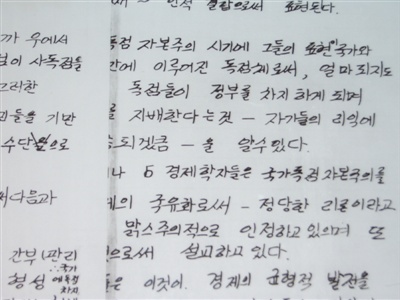 인적 결합으로써 표현된다.
까 우에서
독점 자본주의 시기에 그들의 표현 국가와
넘이 사독점들
간에 이루어진 독점체로써, 얼마 되지도
그러한
독점들이 정부를 차지하게 되며
민들을 기반
를 지배한다는 것 - 자기들의 리익에
수단으로
되겠금 - 을 알수있다.
나 b 경제학자들은 국가독점자본주의를
써다음과
의 국유화로써 - 정당한 리론이라고
맑스주의적으로 인정하고있으며 또
간부나 판리
으로써 설교하고 있다.
형성
국가
독점
차지
은 이것이. 경제의 균형적 발전을